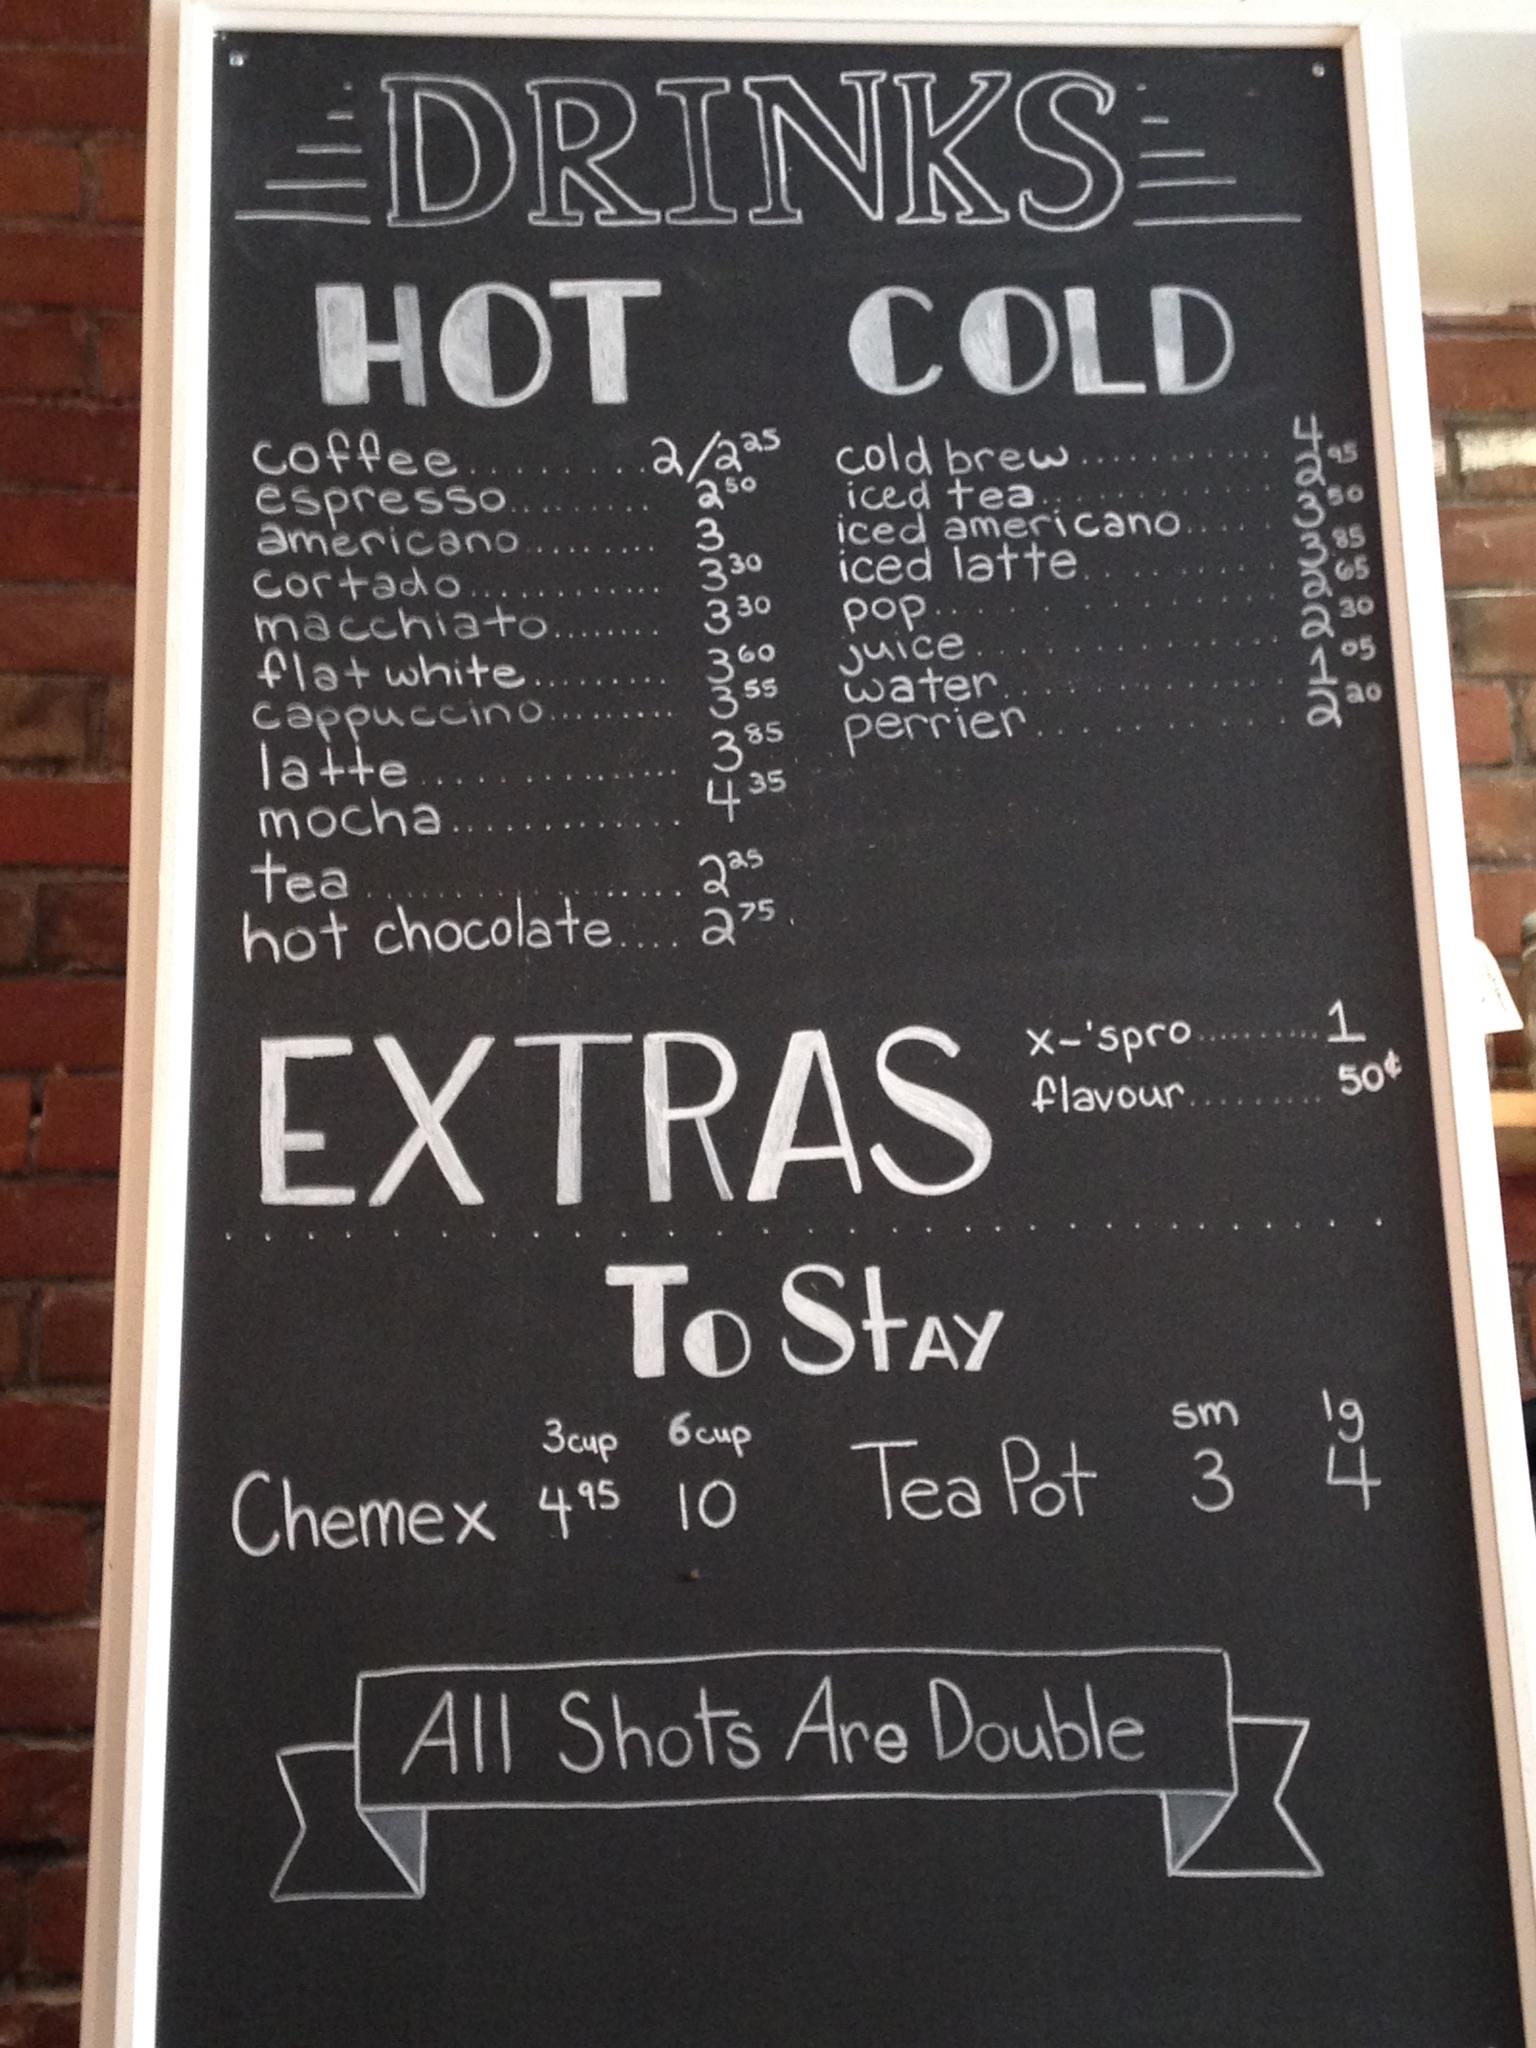 DRINKS
HOT
coffee.........2/2 25
espresso......... 2 50
americano......... 3
cortado............ 3 30
macchiato........ 3 30
flat white.......... 3 60
cappuccino......... 3 55
latte.............. 3 85
mocha............. 4 35
tea.................. 2 25
hot chocolate.... 2 75
COLD
cold brew........... 4
iced tea............. 2 95
iced americano..... 3 50
iced latte.......... 3 85
pop............. 2 65
juice............... 2 30
water............... 1 05
perrier............ 2 20
EXTRAS
x-'spro..........1
flavour......... 50¢
To Stay
3cup 6cup
Chemex 4 95 10
sm lg
Tea Pot 3 4
All Shots Are Double